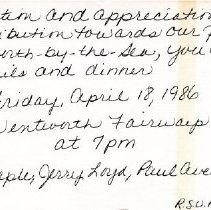 tion and appreciation
ribution towards our
orth-by-the-Sea, you
ils and dinner
Friday, April 18, 1986
Wentworth Fairways
at 7pm
Jerry Loyd, Paul
R.S.V.